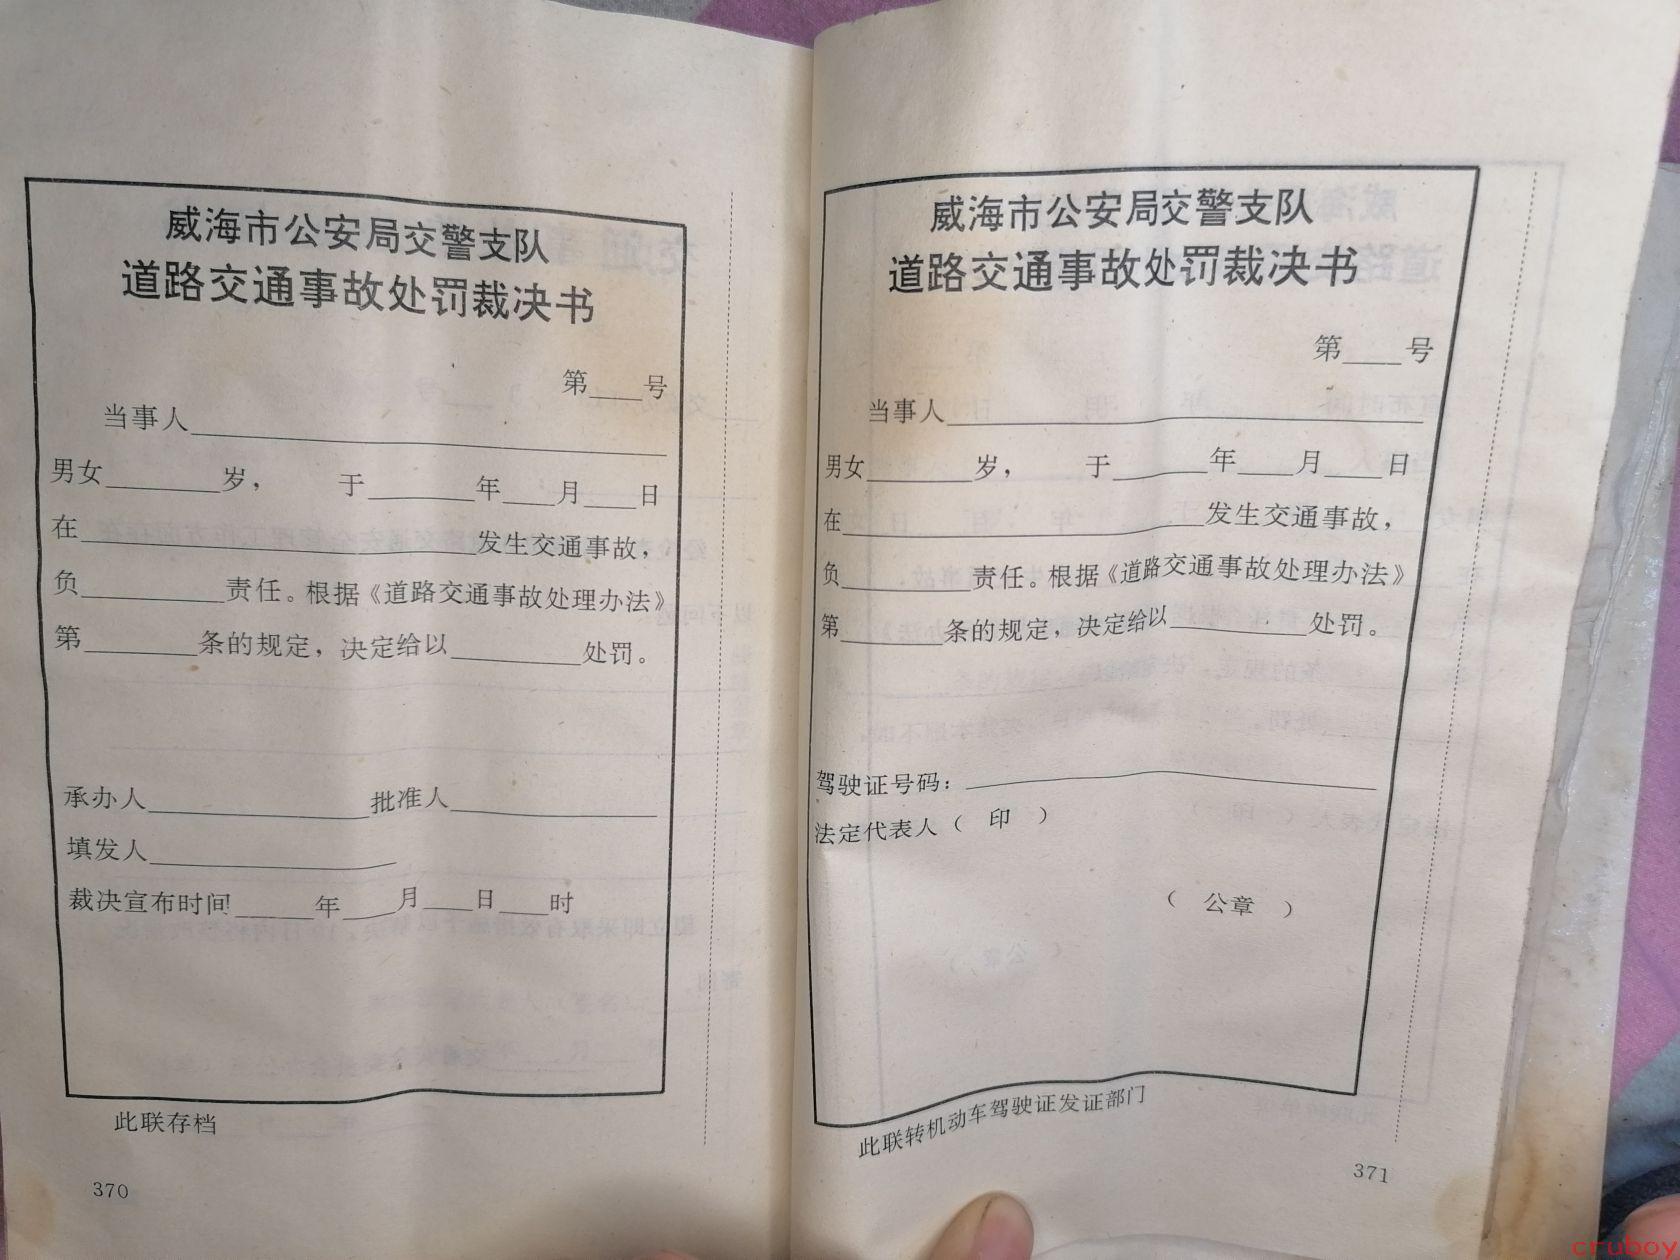 威海市公安局交警支队
道路交通事故处罚裁决书
第____号
当事人____
男女____岁，于____年____月____日
在____发生交通事故，
负____责任。根据《道路交通事故处理办法》
第____条的规定，决定给以____处罚。
承办人____批准人____
填发人____
裁决宣布时间____年____月____日____时
此联存档
370
威海市公安局交警支队
道路交通事故处罚裁决书
第____号
当事人____
男女____岁，于____年____月____日
在____发生交通事故，
负____责任。根据《道路交通事故处理办法》
第____条的规定，决定给以____处罚。
驾驶证号码：____
法定代表人（印）
（公章）
此联转机动车驾驶证发证部门
371
cruboy